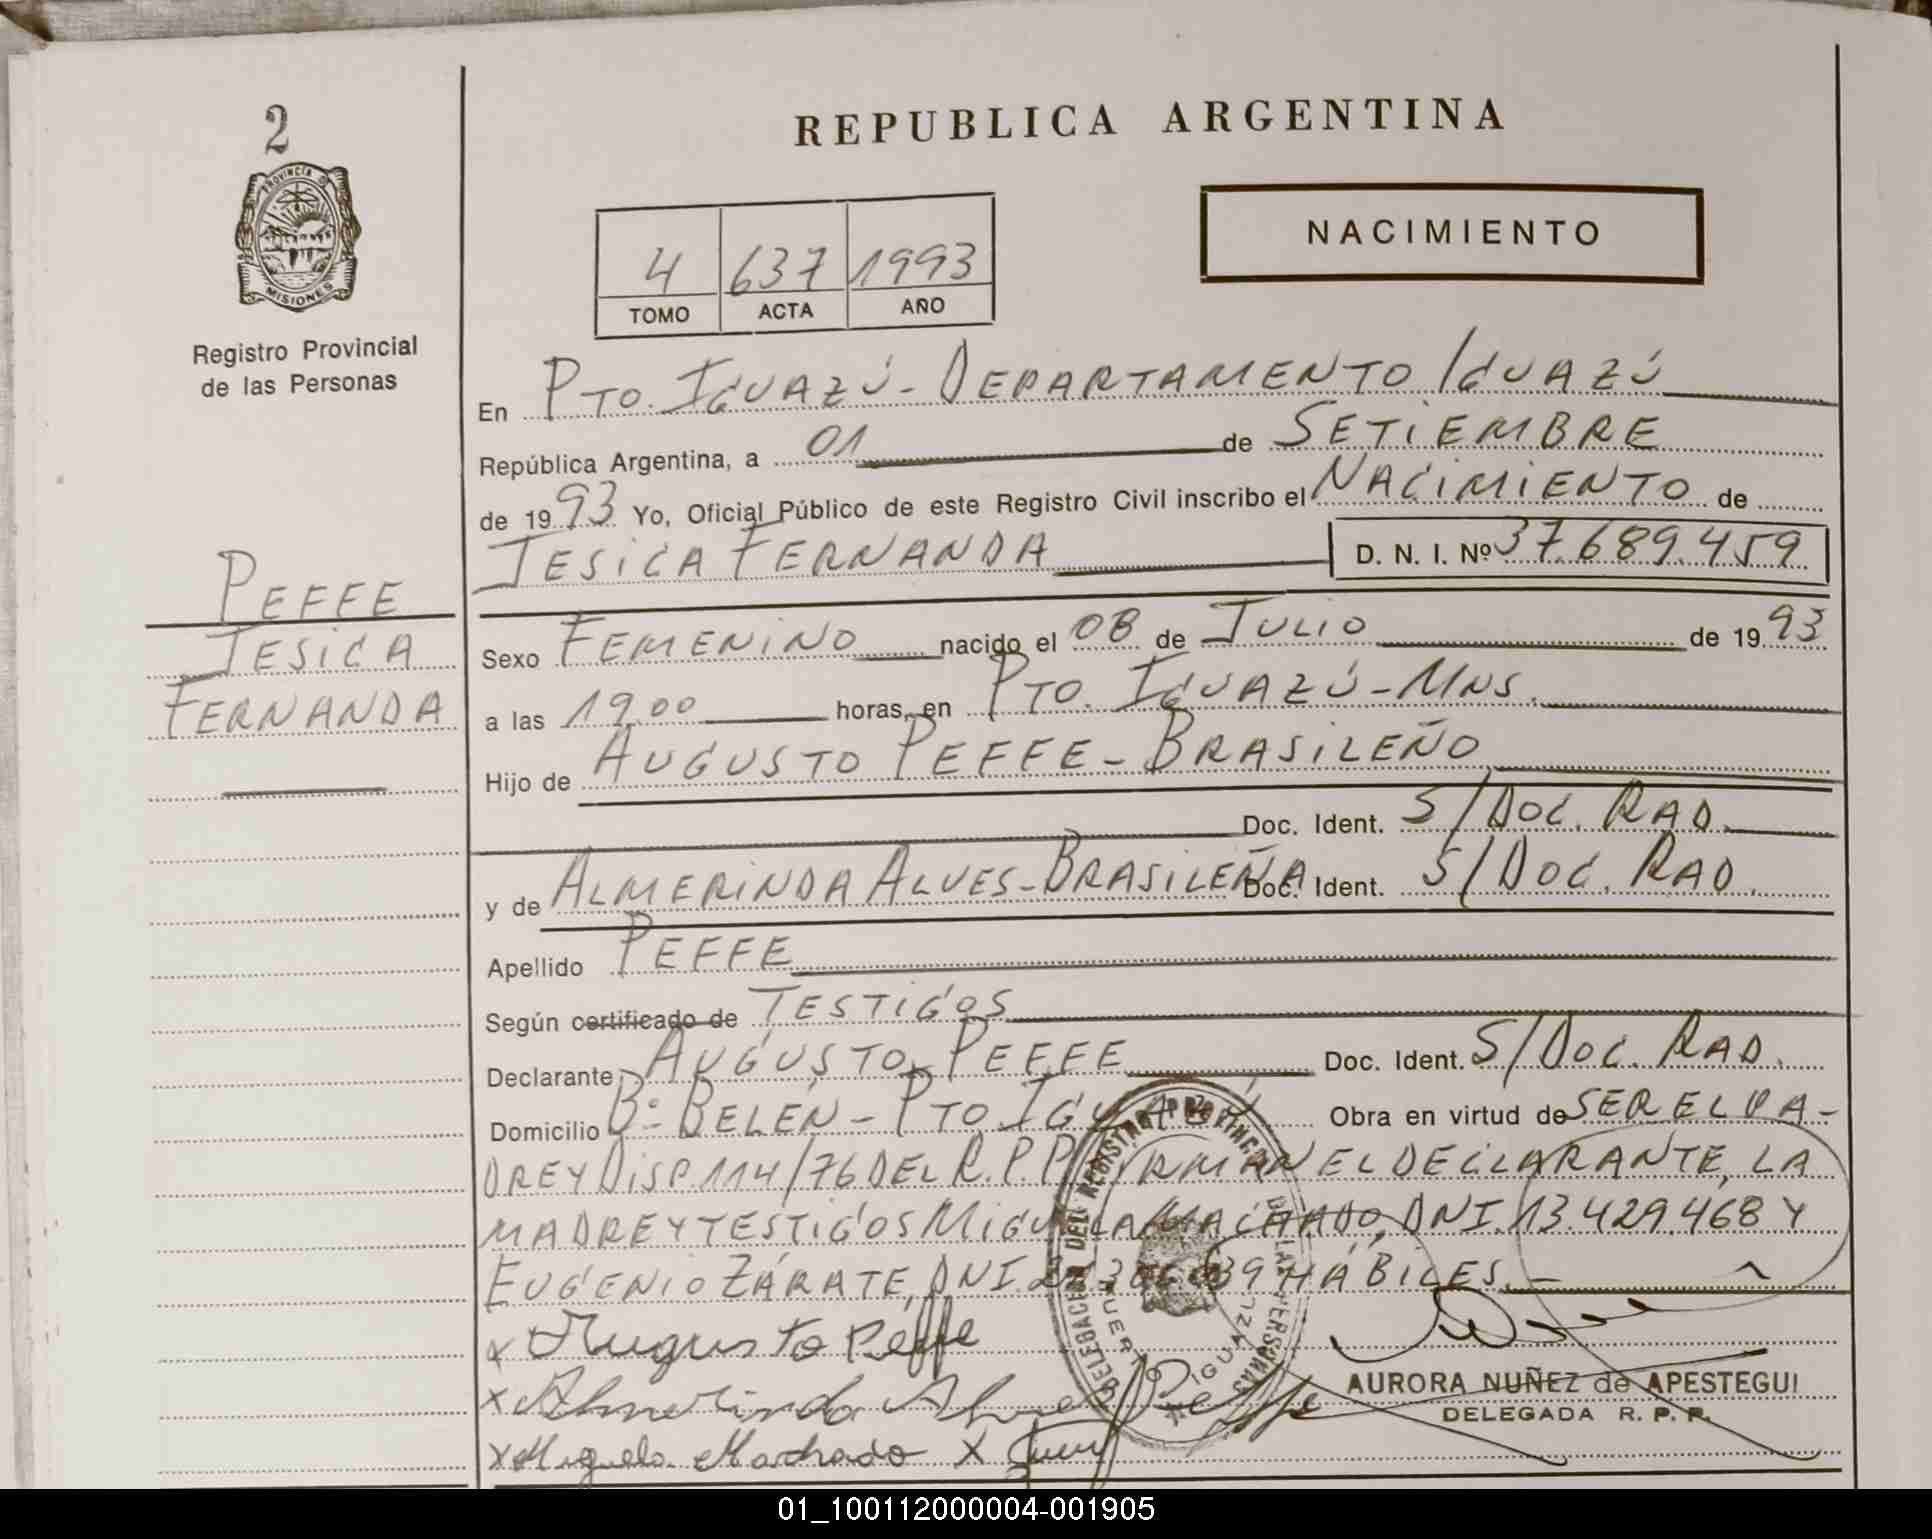 2
REPUBLICA ARGENTINA
PROVINCIA DE
MISIONES
Registro Provincial
de las Personas
4 637 1993
TOMO ACTA AÑO
NACIMIENTO
En PTO. IGUAZÚ - DEPARTAMENTO IGUAZÚ
República Argentina, a 01 de SETIEMBRE
de 1993 Yo, Oficial Público de este Registro Civil inscribo el NACIMIENTO de
JESICA FERNANDA D. N. I. Nº 37.689.459
PEFFE
JESICA
FERNANDA
Sexo FEMENINO nacido el 08 de JULIO de 1993
a las 19,00 horas, en PTO. IGUAZÚ - MNS.
Hijo de AUGUSTO PEFFE - BRASILEÑO
Doc. Ident. S/DOC. RAD.
y de ALMERINDA ALVES - BRASILEÑA Doc. Ident. S/DOC. RAD.
Apellido PEFFE
Según certificado de TESTIGOS
Declarante AUGUSTO PEFFE Doc. Ident. S/DOC. RAD.
Domicilio Bº BELÉN - PTO. IGUAZÚ Obra en virtud de SER EL PA-
DRE Y DISP. 114/76 DEL R.P.P. FIRMAN EL DECLARANTE, LA
MADRE Y TESTIGOS MIGUELA MACHADO, DNI. 13.429.468 Y
EUGENIO ZÁRATE, DNI. HÁBILES. -
x Augusto Peffe
x Almerinda Alves Peffe
x Miguela Machado x
DELEGACION DEL REGISTRO PROVINCIAL DE LAS PERSONAS
PUERTO IGUAZU
AURORA NUÑEZ de APESTEGUI
DELEGADA R. P. P.
01_100112000004-001905